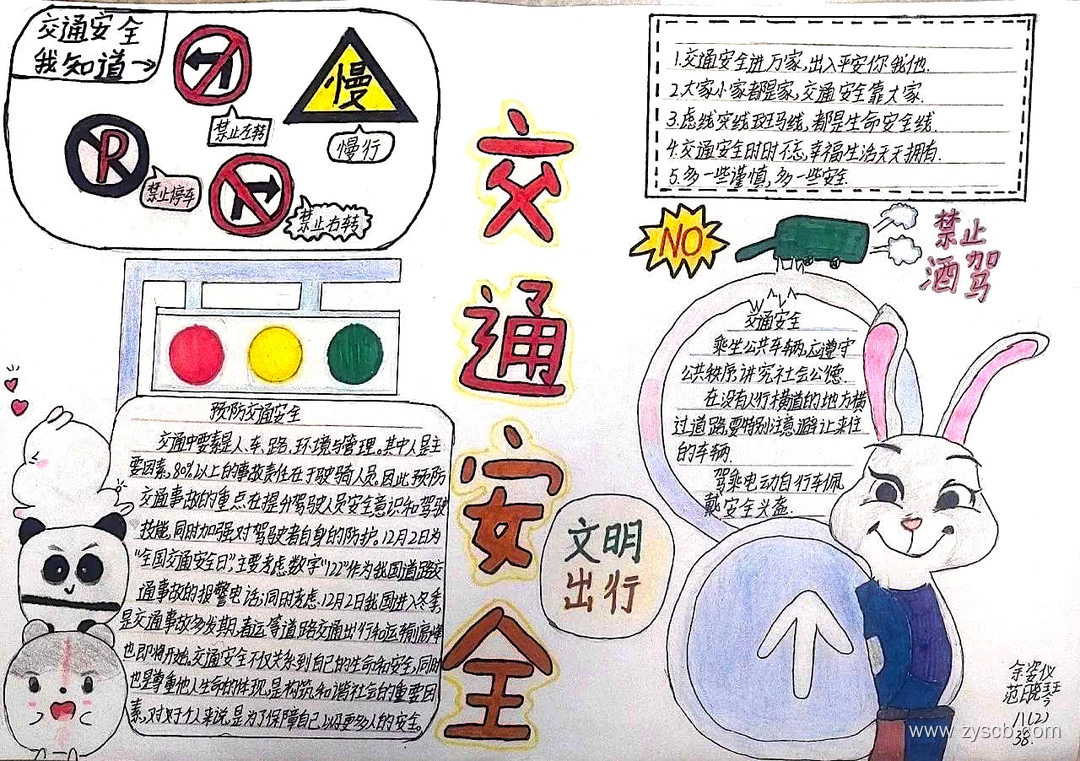 交通安全
我知道→
禁止左转
慢
慢行
P
禁止停车
禁止右转
交通安全
1.交通安全进万家,出入平安你我他.
2.大家小家都是家,交通安全靠大家.
3.虚线实线斑马线,都是生命安全线.
4.交通安全时时不忘,幸福生活天天拥有.
5.多一些谨慎,多一些安全.
NO
禁止
酒驾
预防交通安全
交通中要素是人、车、路、环境与管理。其中人是主
要因素,80%以上的事故责任在于驶骑人员,因此预防
交通事故的重点在提分驾驶人员安全意识和驾驶
技能,同时加强对驾驶者自身的防护。12月2日为
“全国交通安全日”,主要考虑数字“122”作为我国道路交
通事故的报警电话;同时考虑,12月2日我国进入冬季,
是交通事故多发期,春运等道路交通出行和运输高峰
也即将开始。交通安全不仅关系到自己的生命和安全,同时
也是尊重他人生命的体现,是构筑和谐社会的重要因
素,对于个人来说,是为了保障自己以及更多人的安全。
文明
出行
交通安全
乘坐公共车辆,应遵守
公共秩序,讲究社会公德.
在没有人行横道的地方横
过道路,要特别注意避让来往
的车辆.
驾乘电动自行车佩
戴安全头盔.
余姿仪
范晓琴
11(2)
38.
www.zyscb.com